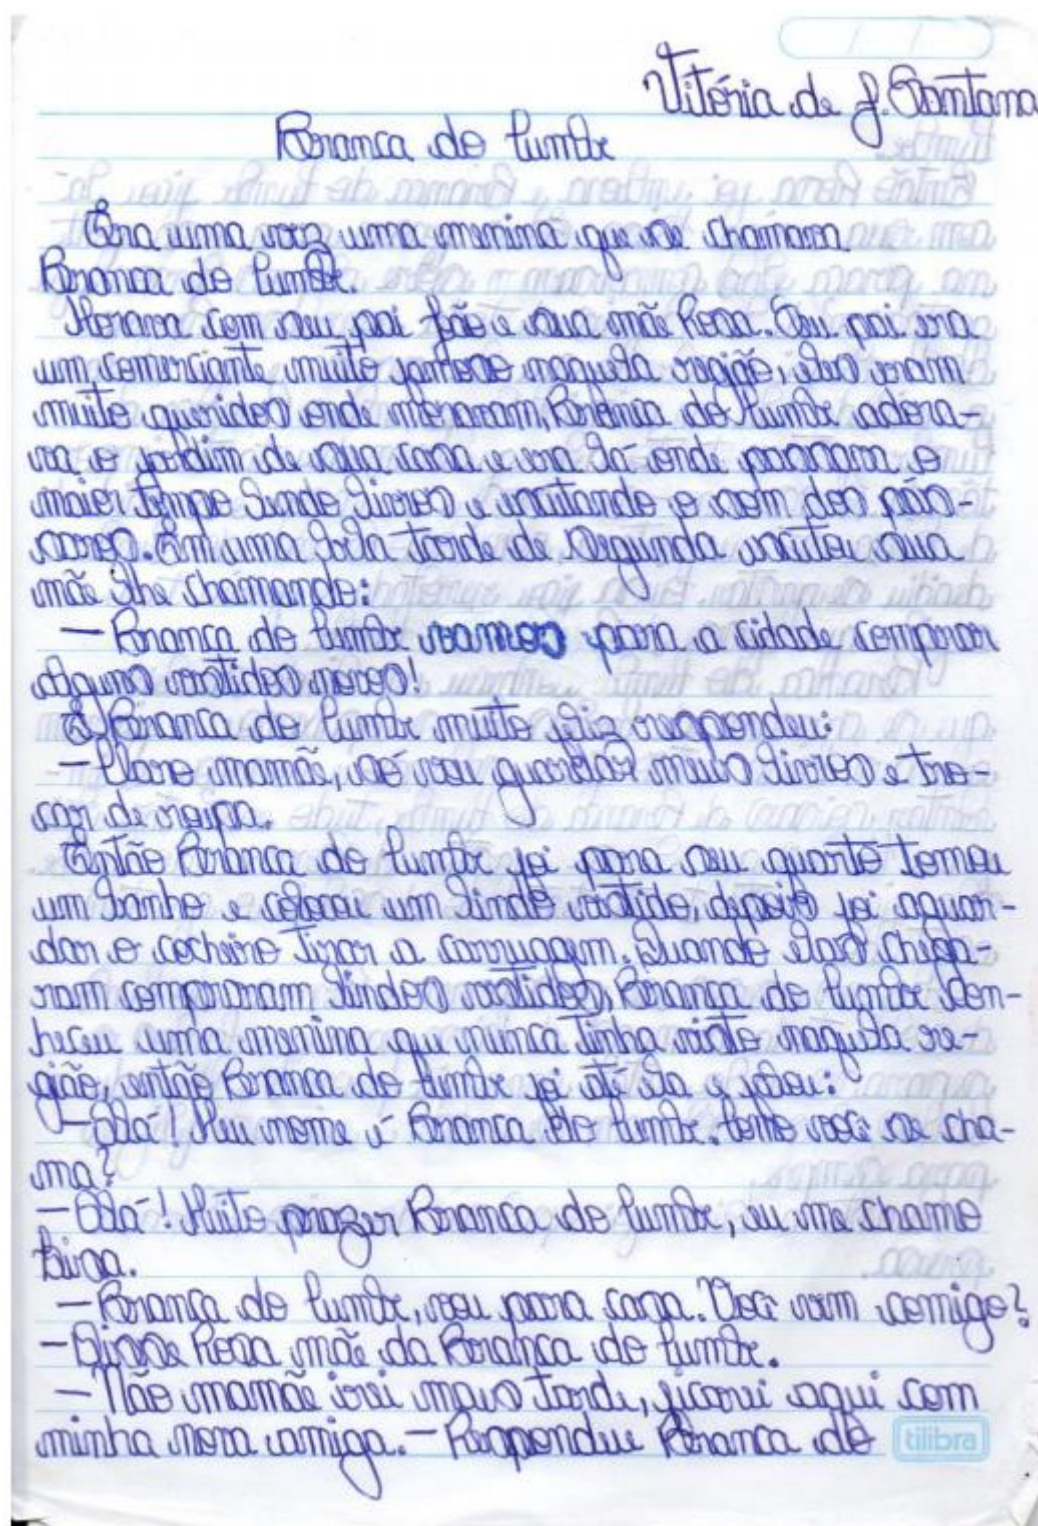 Vitória de J. Santana
Branca do Cumbe
Era uma vez uma menina que se chamava
Branca do Cumbe.
Morava com seu pai João e sua mãe Rosa. Seu pai era
um comerciante muito famoso naquela região, eles eram
muito queridos onde moravam, Branca do Cumbe adora-
va o jardim de sua casa e era lá onde passava o
maior tempo lendo livros e escutando o som dos pás-
saros. Em uma bela tarde de segunda escutou sua
mãe lhe chamando:
— Branca do Cumbe vamos para a cidade comprar
alguns vestidos novos!
E Branca do Cumbe muito feliz respondeu:
— Claro mamãe, só vou guardar meus livros e tro-
car de roupa.
Então Branca do Cumbe foi para seu quarto tomou
um banho e colocou um lindo vestido, depois foi aguar-
dar o cocheiro tirar a carruagem. Quando elas chega-
ram compraram lindos vestidos, Branca do Cumbe con-
heceu uma menina que nunca tinha visto naquela re-
gião, então Branca do Cumbe foi até ela e falou:
— Olá! Meu nome é Branca do Cumbe. Como você se cha-
ma?
— Olá! Muito prazer Branca do Cumbe, eu me chamo
— Branca do Cumbe, vou para casa. Você vem comigo?
— Disse Rosa mãe da Branca do Cumbe.
— Não mamãe irei mais tarde, ficarei aqui com
minha nova amiga. — Respondeu Branca do
tilibra